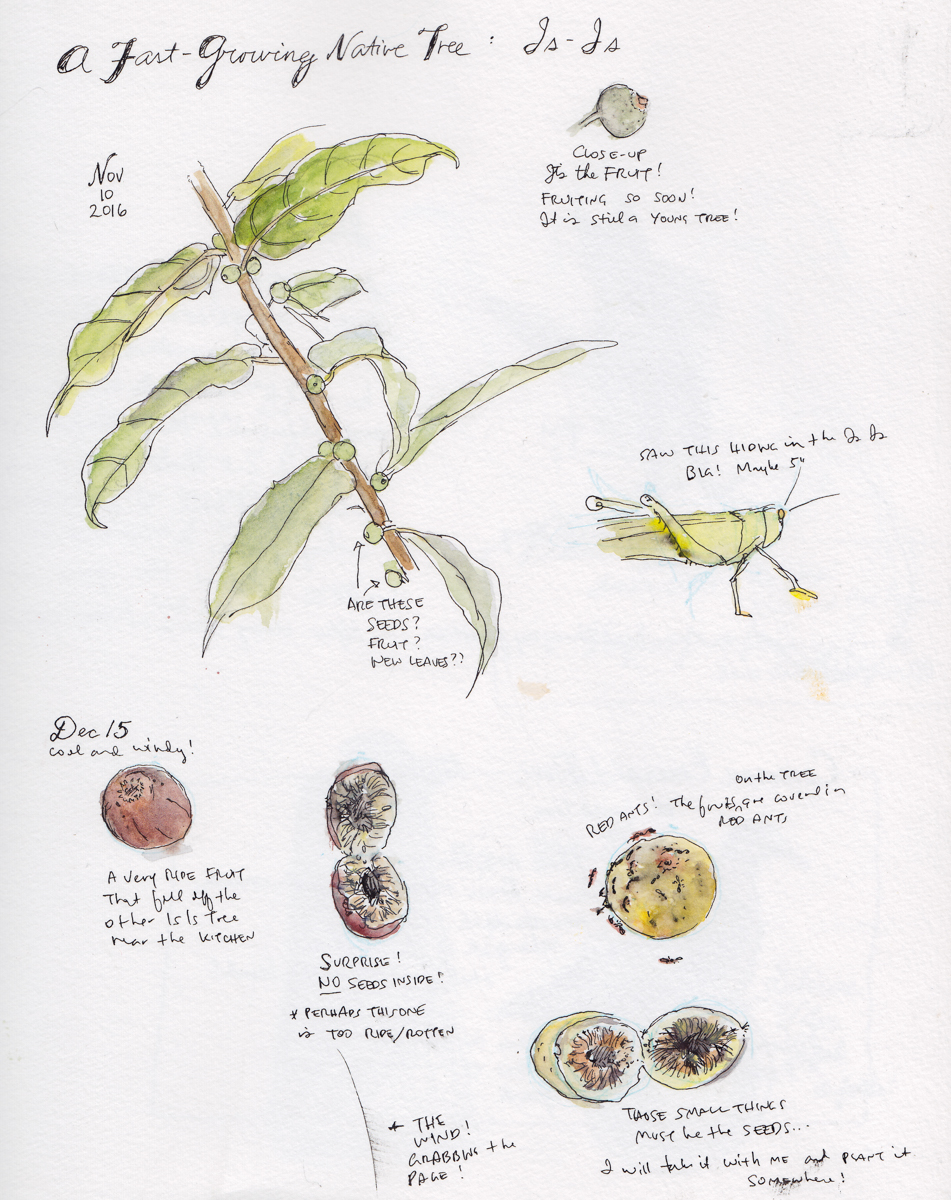 A Fast-Growing Native Tree : Is-Is
Nov
10
2016
CLOSE-UP
It's the FRUIT!
FRUITING SO SOON!
It is still a YOUNG TREE!
SAW THIS HIDING in the Is Is
BIG! Maybe 5"
ARE THESE
SEEDS?
FRUIT?
NEW LEAVES??
Dec 15
cool and windy!
A very RIPE FRUIT
That fell off the
other Is Is Tree
near the KITCHEN
SURPRISE!
NO SEEDS INSIDE!
* PERHAPS THIS ONE
is TOO RIPE/ROTTEN
on the TREE
RED ANTS! The fruits are covered in
RED ANTS
THOSE SMALL THINGS
MUST be the SEEDS...
I will take it with ME and PLANT it
SOMEWHERE!
* THE
WIND!
GRABBING the
PAGE!